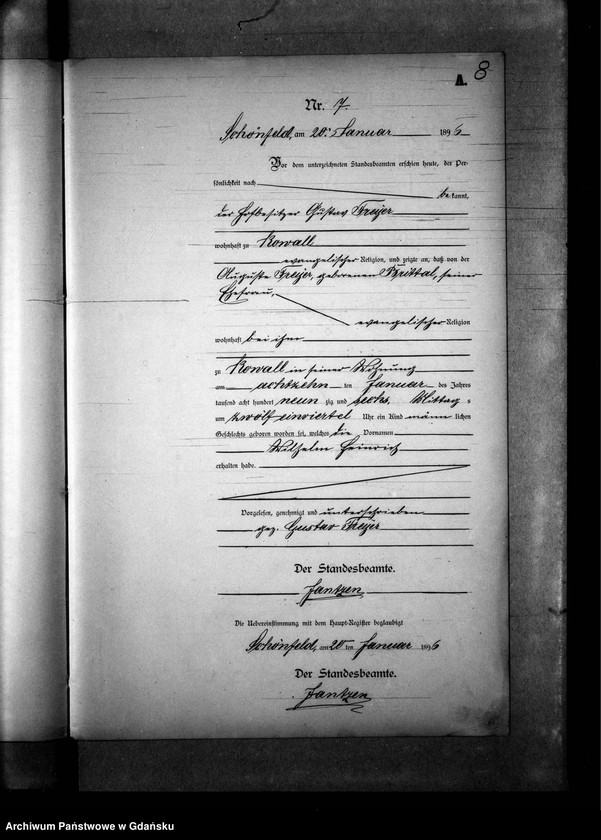 A. 8
Nr. 7.
Schönfeld, am 20. Januar 1896
Vor dem unterzeichneten Standesbeamten erschien heute, der Per-
sönlichkeit nach
be kannt,
der Hofbesitzer Gustav Freyer
wohnhaft zu Kowall
evangelischer Religion, und zeigte an, daß von der
Auguste Freyer, geborenen, seiner
Ehefrau,
evangelischer Religion
wohnhaft bei ihm
zu Kowall in seiner Wohnung
am achtzehn ten Januar des Jahres
tausend acht hundert neun zig und sechs, Mittag s
um zwölf einviertel Uhr ein Kind männ lichen
Geschlechts geboren worden sei, welches die Vornamen
Wilhelm Heinrich
erhalten habe.
Vorgelesen, genehmigt und unterschrieben
gez. Gustav Freyer
Der Standesbeamte.
Jantzen
Die Uebereinstimmung mit dem Haupt-Register beglaubigt
Schönfeld, am 20 ten Januar 1896
Der Standesbeamte.
Jantzen
Archiwum Państwowe w Gdańsku